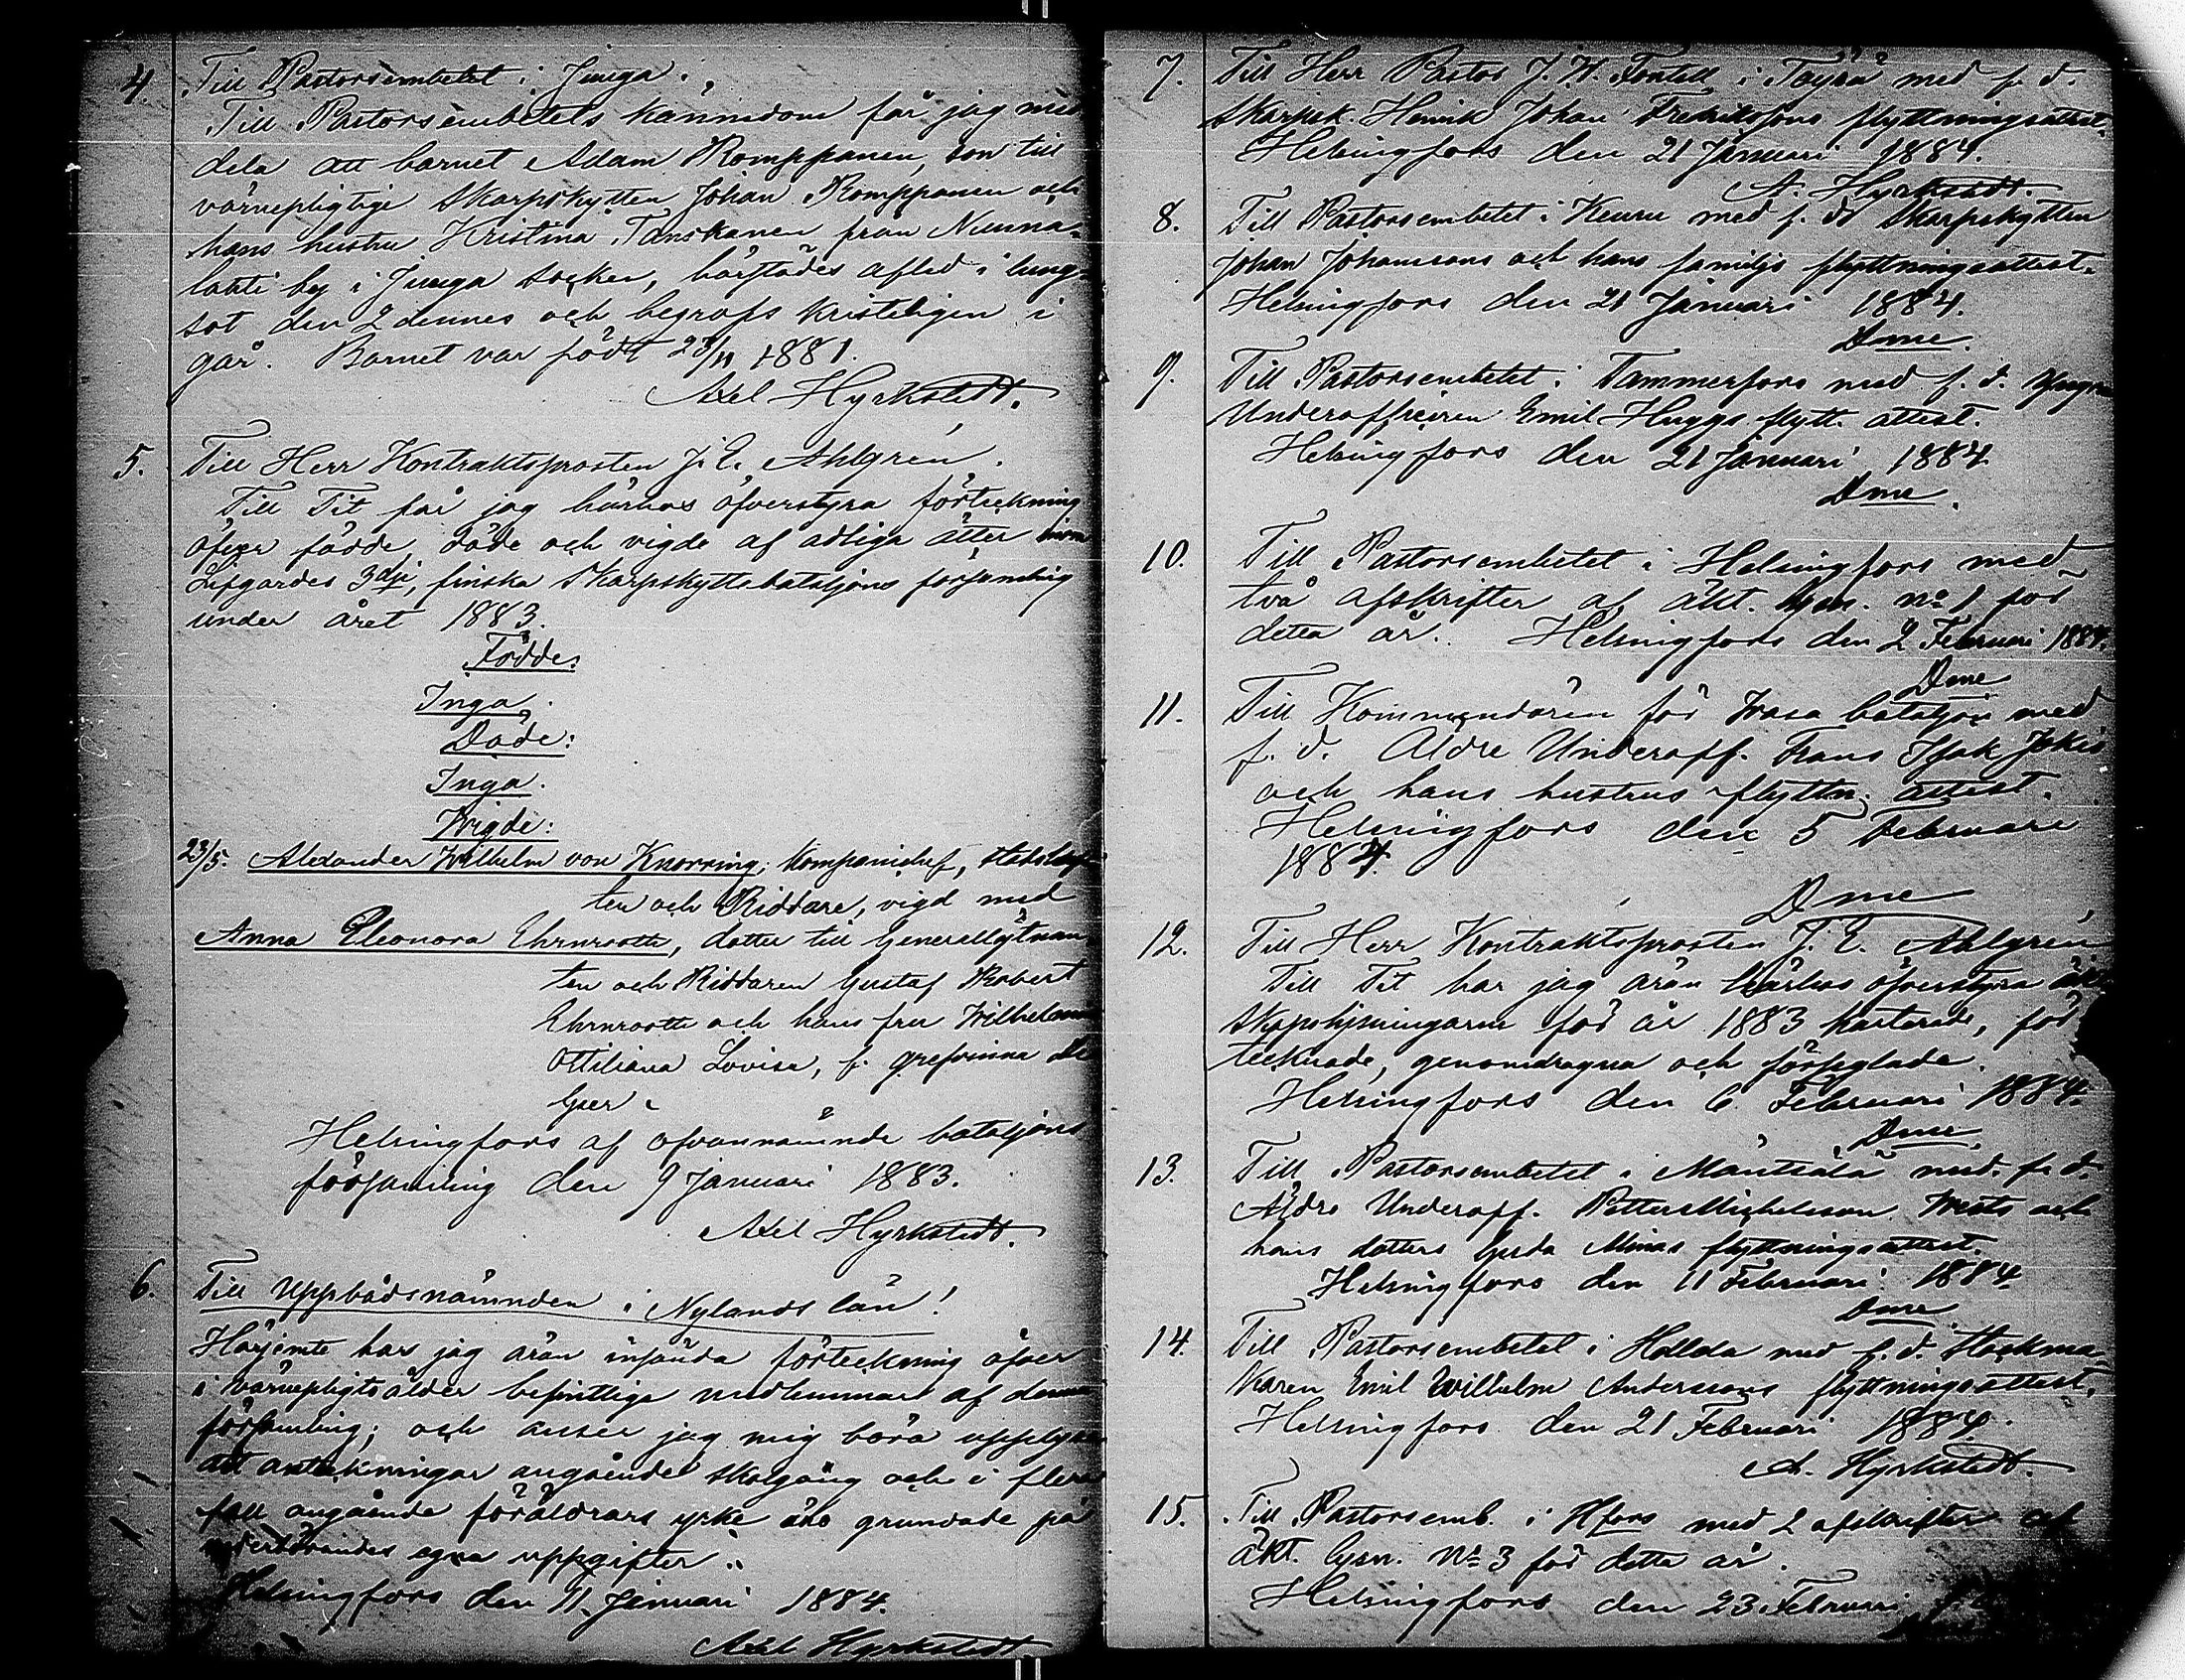 4. Till Pastorsembetet i Juuga.
Till Pastorsembetets kännedom får jag med
dela att barnet Adam Romppanen, son till
värnepligtige Skarpskytten Johan Romppanen och
hans hustru Kristina Tanskanen från Nunna-
lahti by i Juuga socken, härstädes afled i lung-
sot den 2 dennes och begrofs kristeligen i
går. Barnet var född 23/11 1881.
Axel Hyrkstedt.
5. Till Herr Kontraktsprosten J. E. Ahlgren.
Till Tit får jag härhos öfverstyra förteckning
öfver födde, döde och vigde af adliga ätter inom
Lifgardes 3dje finska Skarpskyttebataljons församling
under året 1883.
Födde:
Inga.
Döde:
Inga.
Wigde:
23/5. Alexander Wilhelm von Knorring, kompanichef, stabskap-
ten och Riddare, vigd med
Anna Eleonora Ehrnrooth, dotter till Generallöjtnan-
ten och Riddaren Gustaf Robert
Ehrnrooth och hans fru Wilhelmina
Ottiliana Lovisa, f. grefvinna
Helsingfors af ofvannämnde bataljons
församling den 9 Januari 1883.
Axel Hyrkstedt.
6. Till Uppbådsnämnden i Nylands län!
Härjemte har jag äran insända förteckning öfver
i värnepligtsålder befintlige medlemmar af denna
församling; och anser jag mig böra upplysa
att anteckningar angående skolgång och i flere
fall angående föräldrars yrke äro grundade på
vederbörandes egna uppgifter.
Helsingfors den 11 Januari 1884.
Axel Hyrkstedt.
7. Till Herr Pastor J. W. Fontell i Töysä med f. d.
Skarpsk. Henrik Johan Fredrikssons flyttningsattest.
Helsingfors den 21 Januari 1884.
A. Hyrkstedt.
8. Till Pastorsembetet i Keuru med f. d. Skarpskytten
Johan Johanssons och hans familjs flyttningsattest.
Helsingfors den 21 Januari 1884.
Dme.
9. Till Pastorsembetet i Tammerfors med f. d. Yngre
Underofficeren Emil Huggs flytt. attest.
Helsingfors den 21 Januari 1884.
Dme.
10. Till Pastorsembetet i Helsingfors med
två afskrifter af äkt. lysn. No 1 för
detta år. Helsingfors den 2 Februari 1884.
Dme
11. Till Kommendören för Wasa bataljon med
f. d. Äldre Underoff. Frans Isak
och hans hustrus flyttn. attest.
Helsingfors den 5 Februari
1884.
Dme
12. Till Herr Kontraktsprosten J. E. Ahlgren
Till Tit har jag äran härhos öfverstyra äkten-
skapslysningarne för år 1883 karterade, för-
tecknade, genomdragna och förseglade.
Helsingfors den 6 Februari 1884.
Dme.
13. Till Pastorsembetet i Mäntsälä med f. d.
Äldre Underoff. Petter Michelsson och
hans dotters Minas flyttningsattest.
Helsingfors den 11 Februari 1884
Dme
14. Till Pastorsembetet i Hollola med f. d. Stockma-
karen Emil Wilhelm Anderssons flyttningsattest.
Helsingfors den 21 Februari 1884.
A. Hyrkstedt.
15. Till Pastorsemb. i Hfors med 2 afskrifter af
äkt. lysn. No 3 för detta år.
Helsingfors den 23 Februari